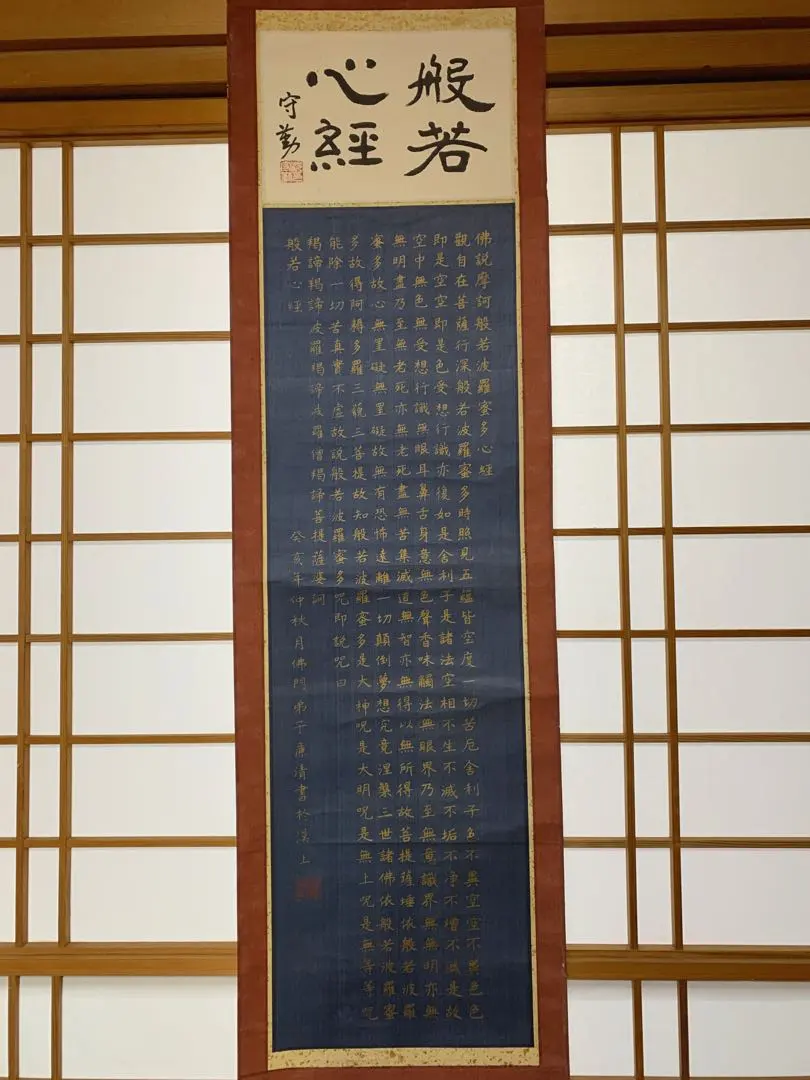 般若
心經
守勤
佛說摩訶般若波羅蜜多心經
觀自在菩薩行深般若波羅蜜多時照見五蘊皆空度一切苦厄舍利子色不異空空不異色色
即是空空即是色受想行識亦復如是舍利子是諸法空相不生不滅不垢不淨不增不減是故
空中無色無受想行識無眼耳鼻舌身意無色聲香味觸法無眼界乃至無意識界無無明亦無
無明盡乃至無老死亦無老死盡無苦集滅道無智亦無得以無所得故菩提薩埵依般若波羅
蜜多故心無罣礙無罣礙故無有恐怖遠離一切顛倒夢想究竟涅槃三世諸佛依般若波羅蜜
多故得阿耨多羅三藐三菩提故知般若波羅蜜多是大神呪是大明呪是無上呪是無等等呪
能除一切苦真實不虛故說般若波羅蜜多呪即說呪曰
羯諦羯諦波羅羯諦波羅僧羯諦菩提薩婆訶
般若心經
癸亥年仲秋月佛門弟子廉清書於溪上